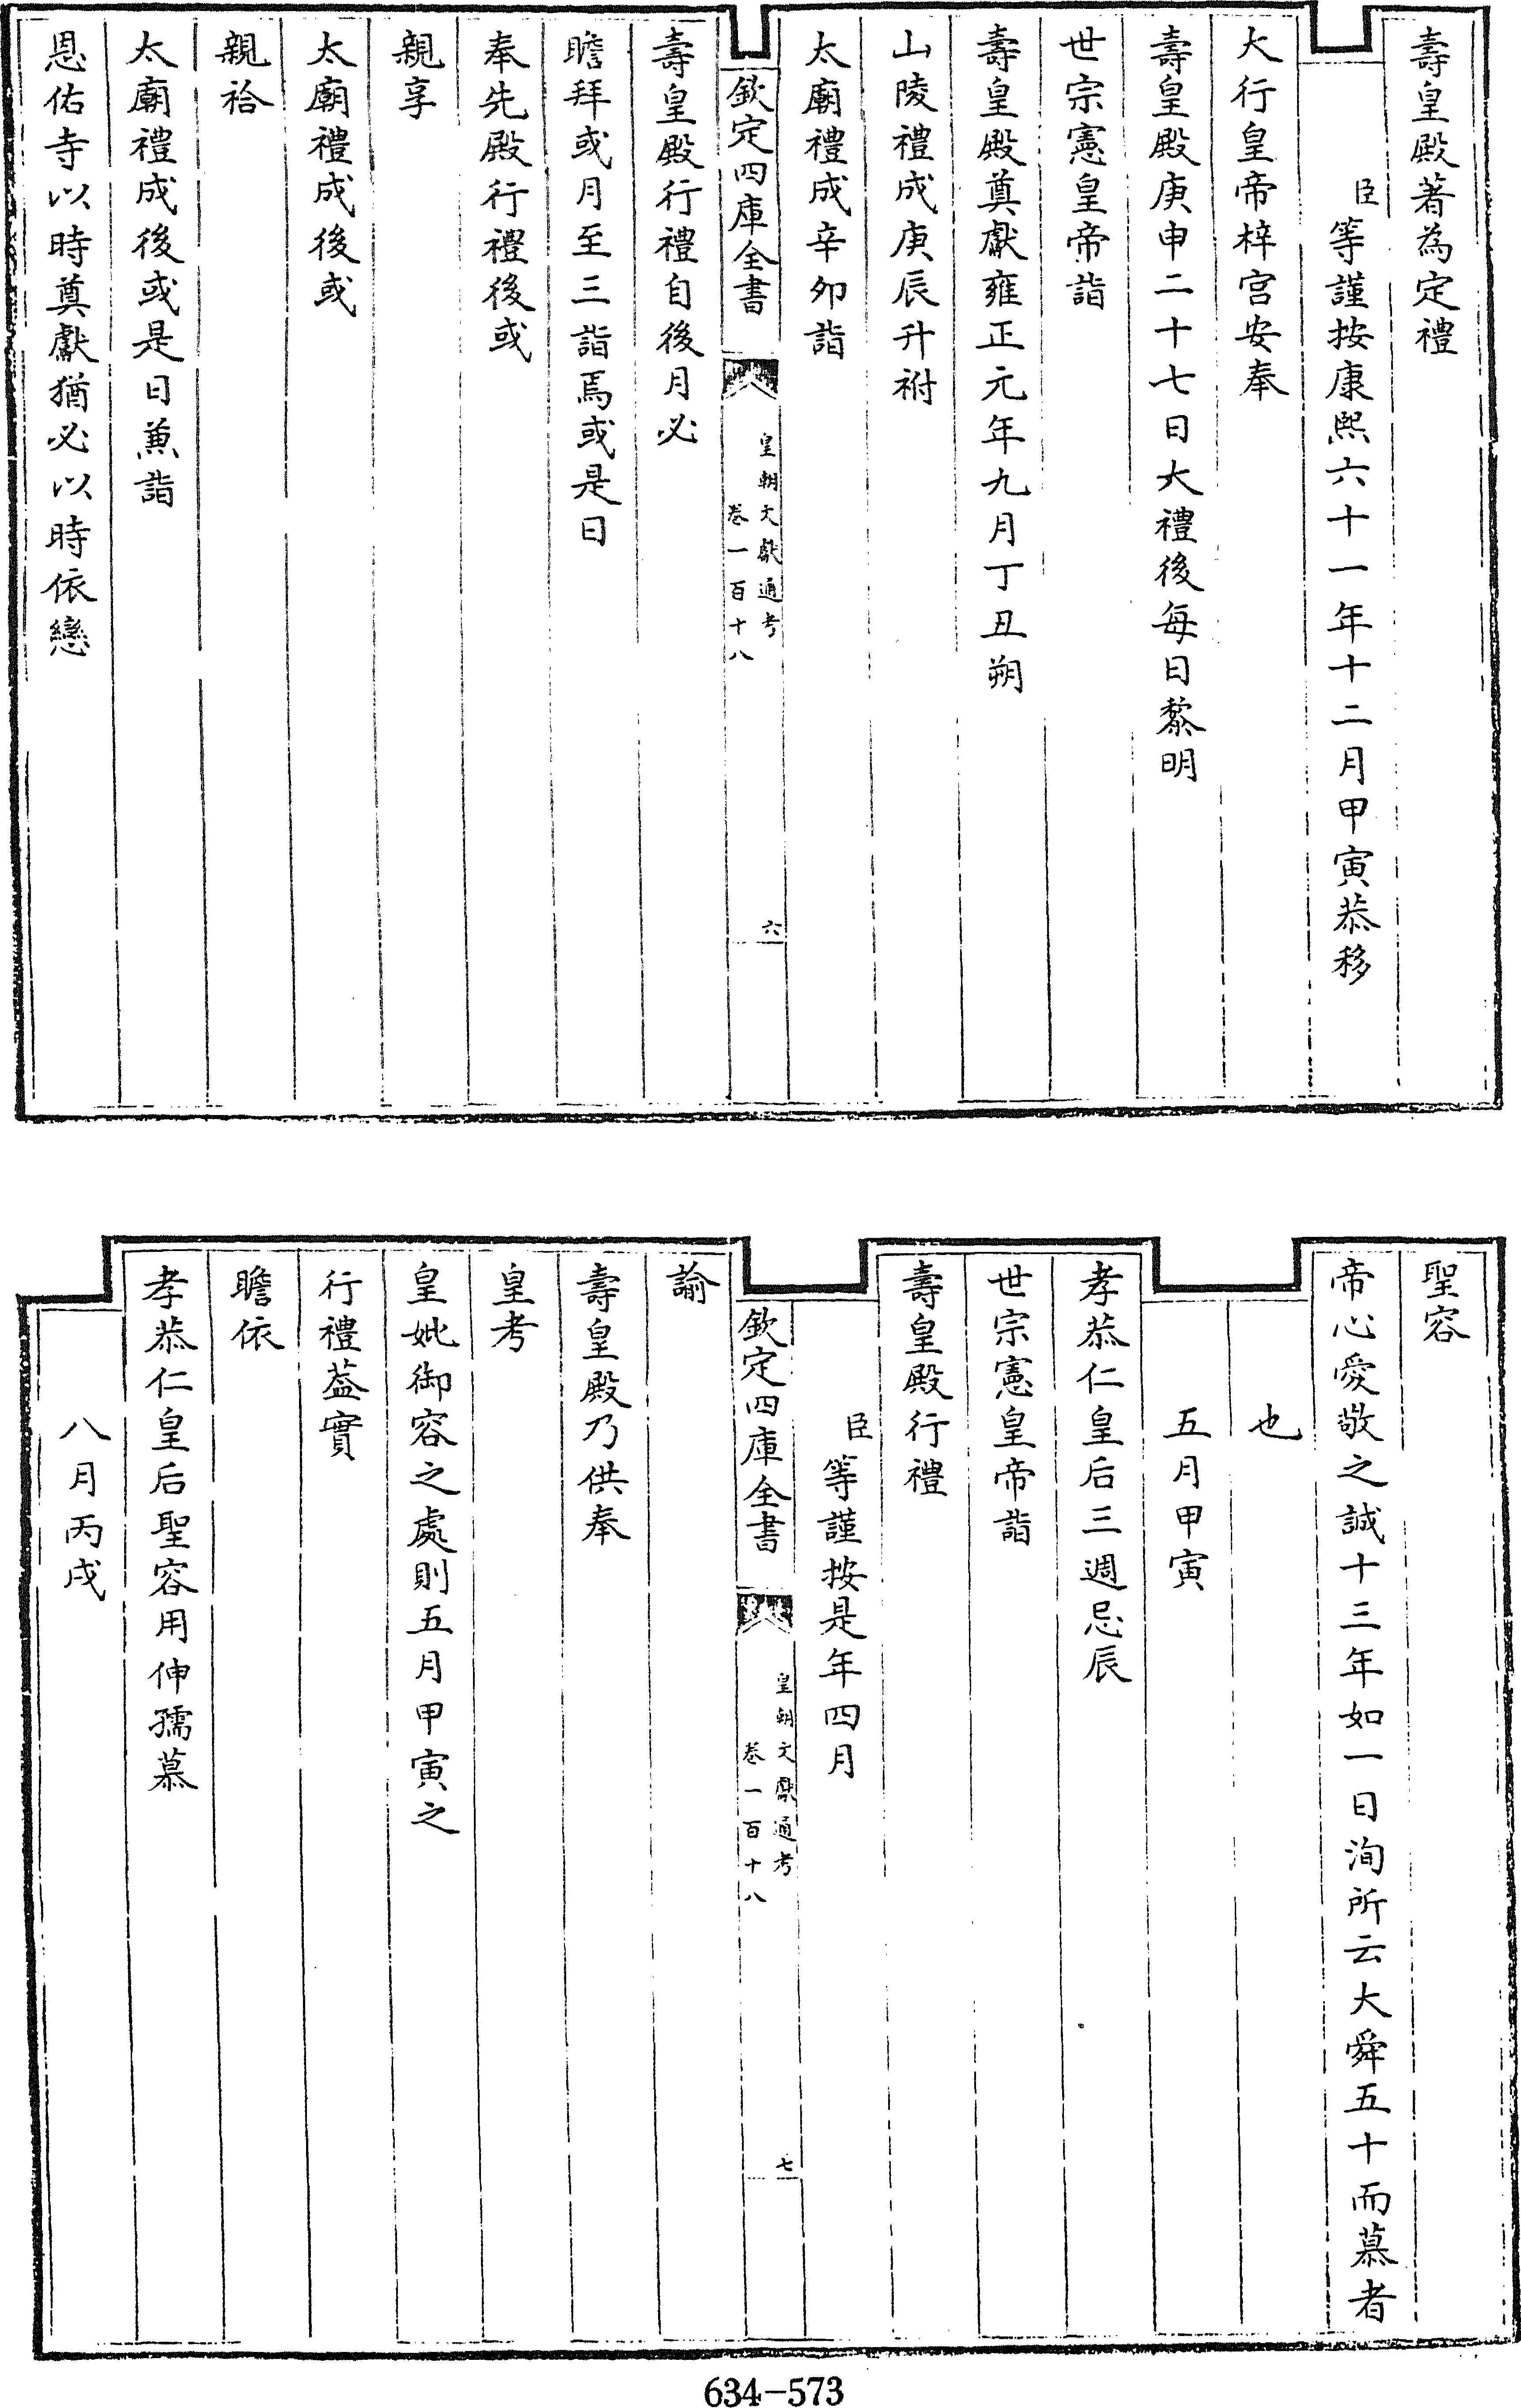 壽皇殿著為定禮
臣等謹按康熙六十一年十二月甲寅恭移
大行皇帝梓宫安奉
壽皇殿庚申二十七日大禮後每日黎明
世宗憲皇帝詣
壽皇殿奠獻雍正元年九月丁丑朔
山陵禮成庚辰升祔
太廟禮成辛夘詣
欽定四庫全書
皇朝文獻通考
卷一百十八
六
壽皇殿行禮自後月必
瞻拜或月至三詣焉或是日
奉先殿行禮後或
親享
太廟禮成後或
親祫
太廟禮成後或是日兼詣
恩佑寺以時奠獻猶必以時依戀
聖容
帝心愛敬之誠十三年如一日洵所云大舜五十而慕者
也
五月甲寅
孝恭仁皇后三週忌辰
世宗憲皇帝詣
壽皇殿行禮
臣等謹按是年四月
欽定四庫全書
皇朝文獻通考
卷一百十八
七
諭
壽皇殿乃供奉
皇考
皇妣御容之處則五月甲寅之
行禮葢實
瞻依
孝恭仁皇后聖容用伸孺慕
八月丙戌
634-573